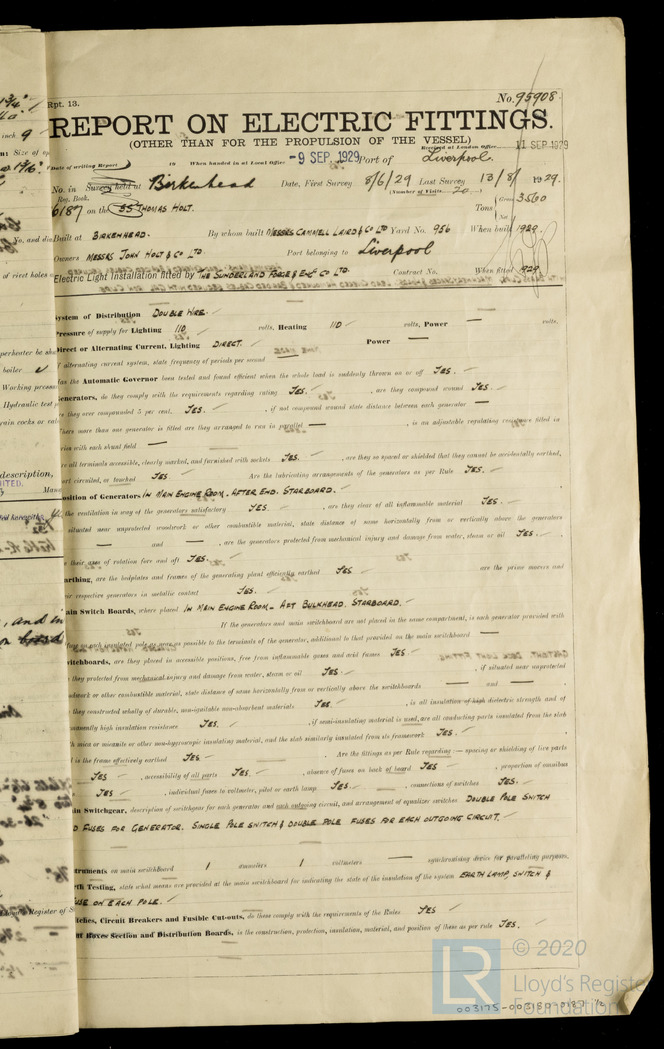 Rpt. 13.
No. 95908.
REPORT ON ELECTRIC FITTINGS.
(OTHER THAN FOR THE PROPULSION OF THE VESSEL)
Received at London Office 11 SEP 1929
Date of writing Report 19 When handed in at Local Office -9 SEP. 1929 Port of Liverpool.
No. in Survey held at Birkenhead Date, First Survey 8/6/29 Last Survey 13/8/1929.
Reg. Book. (Number of Visits 20)
6187 on the SS THOMAS HOLT. Tons Gross 3560
Net
Built at BIRKENHEAD. By whom built MESSRS CAMMELL LAIRD & CO LTD Yard No. 956 When built 1929.
Owners MESSRS JOHN HOLT & CO LTD. Port belonging to Liverpool
Electric Light Installation fitted by THE SUNDERLAND FORGE & ENG CO LTD. Contract No. When fitted 1929
System of Distribution DOUBLE WIRE.
Pressure of supply for Lighting 110 volts, Heating 110 volts, Power — volts.
Direct or Alternating Current, Lighting DIRECT. Power —
If alternating current system, state frequency of periods per second —
Has the Automatic Governor been tested and found efficient when the whole load is suddenly thrown on or off YES.
Generators, do they comply with the requirements regarding rating YES. , are they compound wound YES.
are they over compounded 5 per cent. YES. , if not compound wound state distance between each generator —
Where more than one generator is fitted are they arranged to run in parallel — , is an adjustable regulating resistance fitted in
series with each shunt field —
Are all terminals accessible, clearly marked, and furnished with sockets YES. , are they so spaced or shielded that they cannot be accidentally earthed,
short circuited, or touched YES Are the lubricating arrangements of the generators as per Rule YES.
Position of Generators IN MAIN ENGINE ROOM. AFTER END. STARBOARD.
is the ventilation in way of the generators satisfactory YES. , are they clear of all inflammable material YES.
if situated near unprotected woodwork or other combustible material, state distance of same horizontally from or vertically above the generators
— and — , are the generators protected from mechanical injury and damage from water, steam or oil YES.
are their axes of rotation fore and aft YES.
Earthing, are the bedplates and frames of the generating plant efficiently earthed YES are the prime movers and
their respective generators in metallic contact YES.
Main Switch Boards, where placed IN MAIN ENGINE ROOM - AFT BULKHEAD. STARBOARD.
If the generators and main switchboard are not placed in the same compartment, is each generator provided with
a fuse on each insulated pole as near as possible to the terminals of the generator, additional to that provided on the main switchboard —
Switchboards, are they placed in accessible positions, free from inflammable gases and acid fumes YES.
are they protected from mechanical injury and damage from water, steam or oil YES. , if situated near unprotected
woodwork or other combustible material, state distance of same horizontally from or vertically above the switchboards — and —
are they constructed wholly of durable, non-ignitable non-absorbent materials YES. , is all insulation of high dielectric strength and of
permanently high insulation resistance YES. , if semi-insulating material is used, are all conducting parts insulated from the slab
with mica or micanite or other non-hygroscopic insulating material, and the slab similarly insulated from its framework YES.
is the frame effectively earthed YES. Are the fittings as per Rule regarding :— spacing or shielding of live parts
YES , accessibility of all parts YES. , absence of fuses on back of board YES , proportion of omnibus
YES , individual fuses to voltmeter, pilot or earth lamp YES. , connections of switches YES.
Main Switchgear, description of switchgear for each generator and each outgoing circuit, and arrangement of equalizer switches DOUBLE POLE SWITCH
AND FUSES FOR GENERATOR. SINGLE POLE SWITCH & DOUBLE POLE FUSES FOR EACH OUTGOING CIRCUIT.
Instruments on main switchboard 1 ammeters 1 voltmeters — synchronising device for paralleling purposes.
Earth Testing, state what means are provided at the main switchboard for indicating the state of the insulation of the system EARTH LAMP, SWITCH &
FUSE ON EACH POLE.
Switches, Circuit Breakers and Fusible Cut-outs, do these comply with the requirements of the Rules YES
Joint Boxes Section and Distribution Boards, is the construction, protection, insulation, material, and position of these as per rule YES.
© 2020
LR Lloyd's Register
Foundation
003175-003180-0187 1/2